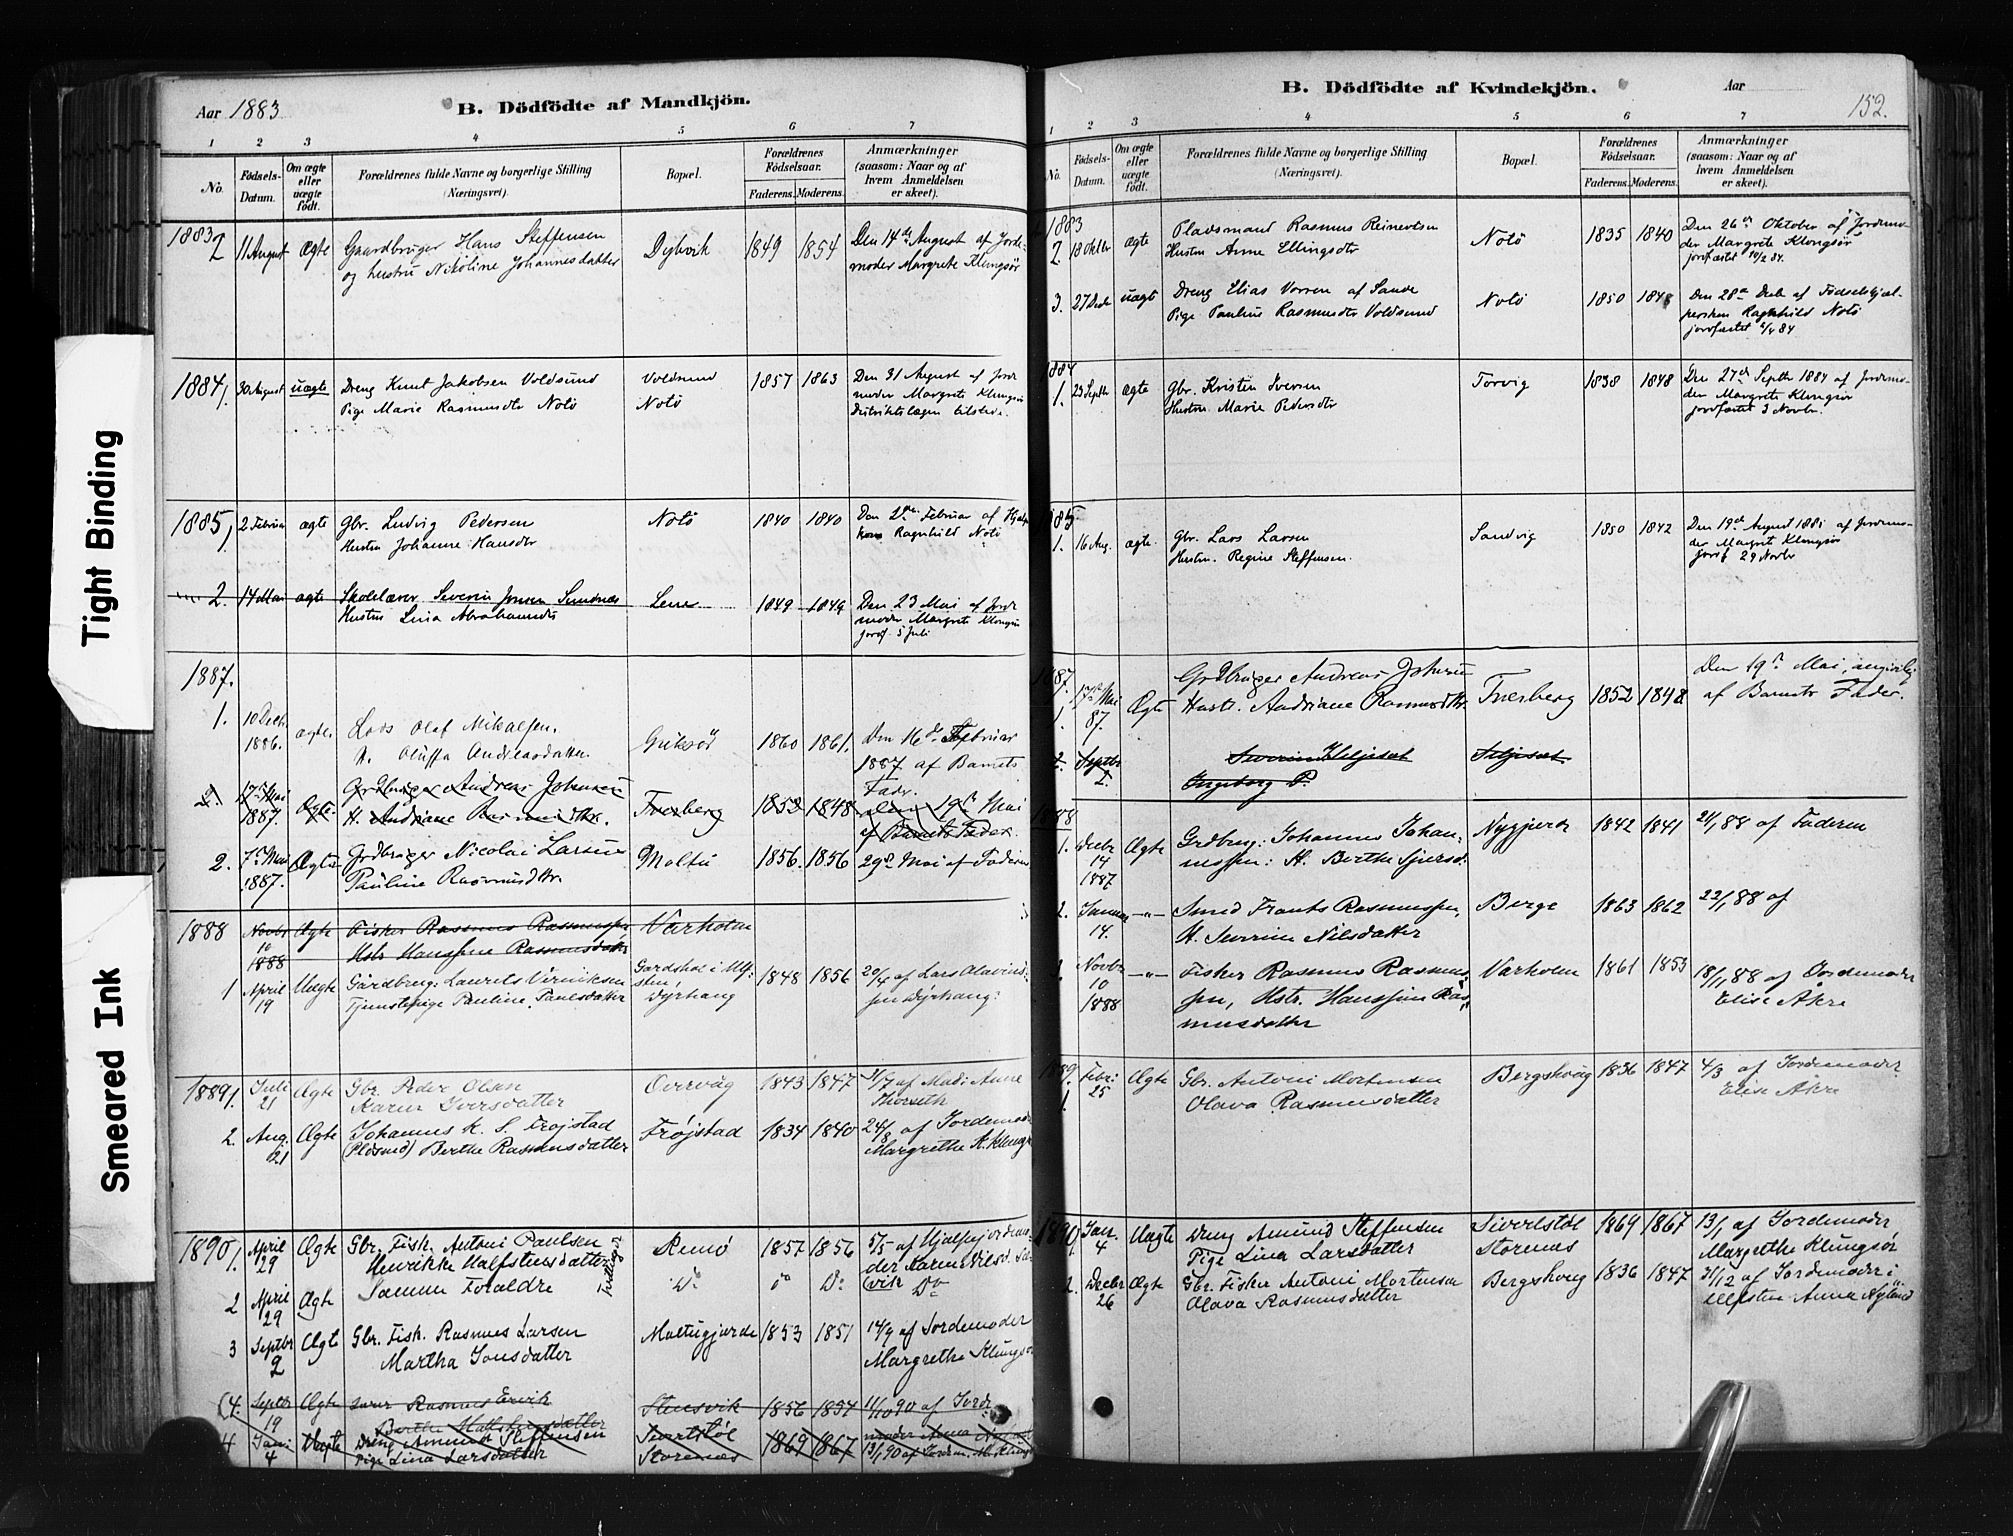 Tight Binding
Smeared Ink
Aar 1883
B. Dödfödte af Mandkjön.
1 2 3 4 5 6 7
No.
Fødsels-
Datum.
Om ægte
eller
uægte
født.
Forældrenes fulde Navne og borgerlige Stilling
(Næringsvei).
Bopæl.
Forældrenes
Fødselsaar.
Faderens. Moderens.
Anmærkninger
(saasom: Naar og af
hvem Anmeldelsen
er skeet).
1883 2 11 August ægte Gaardbruger Hans Steffensen Dybvik 1849 1854 Den 14de August af Jorde-
og hustru Nikoline Johannesdatter moder Margrete Klungsør
1884 1. 30 August uægte Dreng Knut Jakobsen Voldsund Voldsund 1857 1863 Den 31 August af Jord
Pige Marie Rasmusdtr Notö Notö moder Margrete Klongsør
Distriktslægen tilstede.
1885 1 2 Februar ægte Gbr. Ludvig Pedersen Notö 1840 1840 Den 2den Februar af Hjælpe
Hustru Johanne Hansdtr kone Ragnhild Notö
2. 14 Mai ægte Skolelærer Severin Jonsen Sundnæs 1849 1849 Den 23 Mai af Jord
Hustru Lina Abrahamsdtr moder Margrete Klongsør
jordf. 5 Juli
1887.
1. 10 Decb. 1886. ægte. Lars Olaf Mikalsen. 1860 1861. Den 16de Februar
H. Oluffa Andreasdatter. 1887 af Barnets
Fader.
2. 17de Mai 1887. Ægte. Grdbruger Andreas Johnsen Tverberg 1852 1848 Den 19de Mai
H. Andriane Rasmusdtr. af Barnets Fader.
2. 7de Mai 1887. Ægte Grdbruger Nicolai Larsen Moltu 1856. 1856 29de Mai af Faderen
Pauline Rasmusdtr.
1888 Novbr 10 1888 Ægte Fisker Rasmus Rasmussen Varholm
Hstr Hanssine Rasmusdatter
1 April 19 Uægte Gårdbrug. Laurits Viriniksen Gardshol i Ulf-
sten 1848 1856 20/4 af Lars Olavius-
Tjenstepige Pauline Paulsdatter Dyrhaug sen Dyrhaug.
1889 1. Juli 21 Ægte Gbr Peder Olsen Overvåg 1843 1847 31/7 af Mad: Anne
Karen Iversdatter Thorseth
2. Aug. 21 Ægte Johannes K. S. Frøjstad Frøjstad 1834 1840 24/8 af Jordemoder
(Pldsmd) Berthe Rasmusdatter Margrethe K. Klungs
1890 1. April 29 Ægte Gbr. Fisk. Antoni Paulsen Remø 1857 1856 5/5 af Hjælpejordemo
Henrikke Halfstensdatter der Karen Nilsd.
Tvillinger
2 April 29 Ægte Samme Forældre Do do Do vik Do
3 Septbr 2 Ægte Gbr. Fisk. Rasmus Larsen Moltugjærde 1853 1851 14/9 af Jordemoder
Martha Jonsdatter Margrethe Klungsø
4. Septbr 19 Ægte Rasmus Ervik Stensvik 1856 1857 11/10 90 af Jord
Berthe Halfstensdatter moder Anna
4 Jan: 4 Uægte Dreng Amund Steffensen Sivertstøl 1869 1867 13/1 90 af Jordm. M. Klungs
Pige Lina Larsdatter Storenæs
B. Dödfödte af Kvindekjön.
Aar
152.
1 2 3 4 5 6 7
No.
Fødsels-
Datum.
Om ægte
eller
uægte
født.
Forældrenes fulde Navne og borgerlige Stilling
(Næringsvei).
Bopæl.
Forældrenes
Fødselsaar.
Faderens. Moderens.
Anmærkninger
(saasom: Naar og af
hvem Anmeldelsen
er skeet).
1883
2. 18 Oktbr ægte Pladsmand Rasmus Reinertsen Notö 1835 1840 Den 26de Oktober af Jordemo-
Hustru Anne Ellingsdtr der Margrete Klongsør
jordfæstet 10/2 84.
3. 27 Decb uægte Dreng Elias Vorren af Sande Notö 1850 1848 Den 28de Decb af Fødselshjæl-
Pige Pauline Rasmusdtr Voldsund persken Ragnhild Notö
jordfæstet 84
1884
1. 23 Septbr ægte Gbr. Kristen Iversen Torvig 1838 1848 Den 27de Septbr 1884 af Jordemo-
Hustru Marie Pedersdtr der Margrete Klongsør
jordfæstet 3 Novbr.
1885
1. 16 Aug. ægte. Gbr. Lars Larsen Sandvig 1850 1842 Den 19de August 1885 af Jordemo-
Hustru. Regine Steffensen. der Margrete Klongsør
jordf 29 Novbr
1887.
1. 17de Mai 87. Ægte Grdbruger Andreas Johnsen Tverberg 1852 1848 Den 19de Mai, angivelig
Hustr. Andriane Rasmusdtr. af Barnets Fader.
2. Septbr 2. Severin Heljesæt Seljesæt
Ingeborg P.
1888
1. Decbr 14 1887 Ægte Grdbrug: Johannes Johan- Nygjerde 1842 1841 24/1 88 af Faderen
nessen: H. Berthe Sjursd.
2. Januar 14. —"— Smed Frants Rasmussen, Berge 1863 1862 22/1 88 af
H. Severine Nilsdatter
Novbr 10 1888 —"— Fisker Rasmus Rasmus- Varholm 1861 1853 18/11 88 af Jordemoder
sen, Hstr. Hanssine Ras- Elise Åkre
musdatter
1889.
1. Febr: 25 Ægte Gbr. Antoni Mortensen Bergshoug 1836 1847 4/3 af Jordemoder
Olava Rasmusdatter Elise Åkre
1890 1. Jan. 4 Uægte Dreng Amund Steffensen Sivertstøl 1869 1867 13/1 af Jordemoder
Pige Lina Larsdatter Storenæs Margrethe Klungsør
2. Decbr 26 Ægte Gbr. Fisker Antoni Mortensen Bergshoug 1836 1847 31/12 af Jordemoder i
Olava Rasmusdatter Ulfsten Anna Nyland